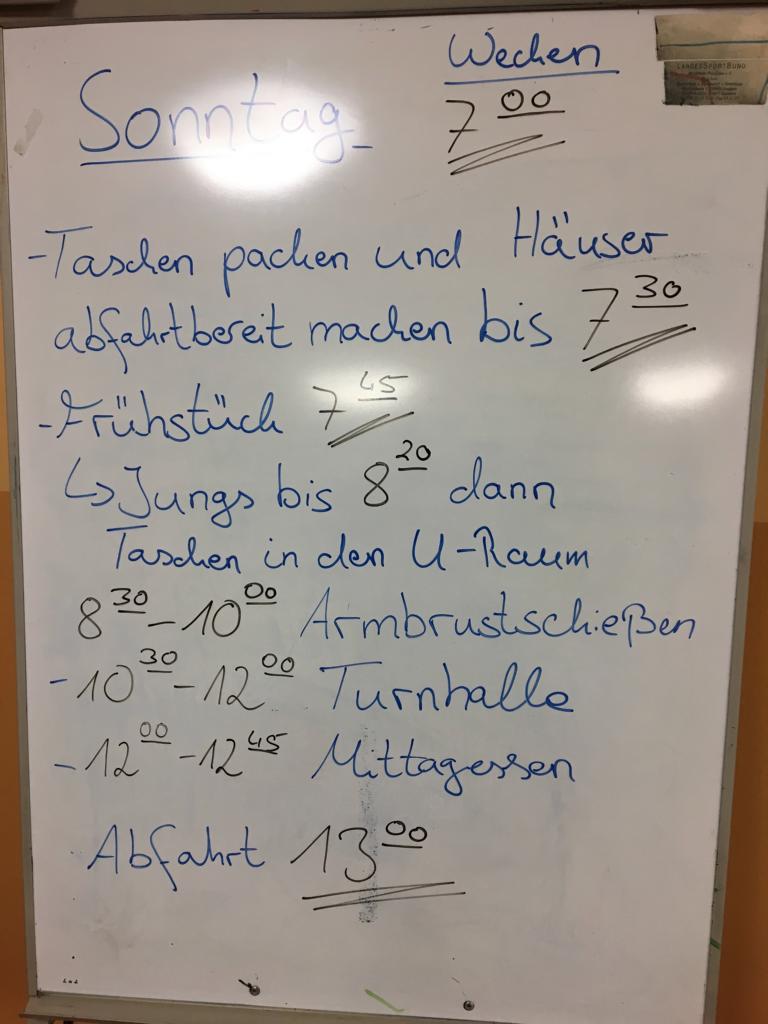 Sonntag
Wecken
7 00
- Taschen packen und Häuser
abfahrtbereit machen bis 7 30
- Frühstück 7 45
↳ Jungs bis 8 20 dann
Taschen in den U-Raum
8 30 - 10 00 Armbrustschießen
- 10 30 - 12 00 Turnhalle
- 12 00 - 12 45 Mittagessen
Abfahrt 13 00
LANDESSPORTBUND